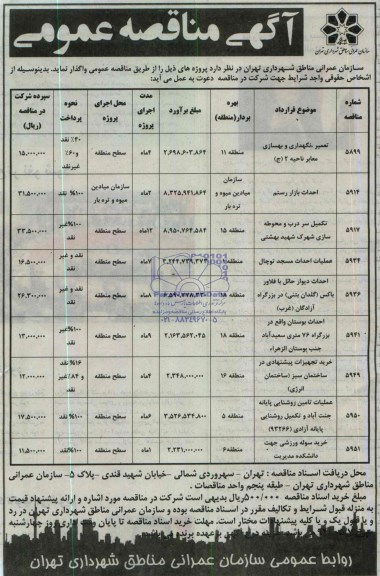 آگهی مناقصه عمومی
سازمان عمرانی مناطق شهرداری تهران
سازمان عمرانی مناطق شهرداری تهران در نظر دارد پروژه های ذیل را از طریق مناقصه عمومی واگذار نماید. بدینوسیله از
اشخاص حقوقی واجد شرایط جهت شرکت در مناقصه دعوت به عمل می آید:
شماره مناقصه موضوع قرارداد بهره بردار(منطقه) مبلغ برآورد مدت اجرای پروژه محل اجرای پروژه نحوه پرداخت سپرده شرکت در مناقصه (ریال)
۵۸۹۹ تعمیر نگهداری و بهسازی معابر ناحیه ۲ (ج) منطقه ۱۱ ۲,۶۹۸,۶۰۳,۸۶۴ ۴ماه سطح منطقه ۴۰٪ نقد و ۶۰٪ غیرنقد ۱۵,۰۰۰,۰۰۰
۵۹۱۴ احداث بازار رستم سازمان میادین میوه و تره بار ۸,۳۲۵,۹۴۱,۸۶۴ ۲ماه سازمان میادین میوه و تره بار ۱۰۰٪ نقد ۳۱,۵۰۰,۰۰۰
۵۹۱۷ تکمیل سر درب و محوطه سازی شهرک شهید بهشتی منطقه ۱۵ ۸,۹۵۰,۷۶۴,۵۸۴ ۱۲ماه سطح منطقه ۱۰۰٪غیر نقد ۳۳,۵۰۰,۰۰۰
۵۹۳۴ عملیات احداث مسجد توچال منطقه ۷ماه سطح منطقه نقد و غیر نقد ۱۶,۵۰۰,۰۰۰
۵۹۳۶ احداث دیوار حائل با فلاور باکس (گلدان بتنی) در بزرگراه آزادگان (غرب) سطح منطقه نقد و غیر نقد ۲۶,۳۰۰,۰۰۰
۵۹۴۱ احداث بوستان واقع در بزرگراه ۷۶ متری سعیدآباد جنب بوستان الزهراء منطقه ۱۸ ۲,۱۶۳,۵۶۲,۰۴۵ ۴ماه سطح منطقه ۱۰۰٪غیر نقد ۱۳,۰۰۰,۰۰۰
۵۹۴۹ خرید تجهیزات پیشنهادی در ساختمان سبز (ساختمان انرژی) منطقه ۱۶ ۲,۳۴۸,۰۰۰,۰۰۰ ۴ماه سطح منطقه ۱۶٪ نقد و ۸۴٪غیر نقد ۱۲,۰۰۰,۰۰۰
۵۹۵۰ عملیات تامین روشنایی پایانه جنت آباد و تکمیل روشنایی پایانه آزادی (۹۳۲۶۶) منطقه ۵ ۳,۵۲۶,۵۳۴,۸۰۰ ۶ماه سطح منطقه ۱۰۰٪ نقد ۱۷,۵۰۰,۰۰۰
۵۹۵۱ خرید سوله ورزشی جهت دانشکده مدیریت منطقه۶ ۲,۲۳۱,۰۰۰,۰۰۰ ۱ماه سطح منطقه ۱۰۰٪نقد ۱۱,۵۰۰,۰۰۰
محل دریافت اسناد مناقصه: تهران - سهروردی شمالی -خیابان شهید قندی -پلاک ۵- سازمان عمرانی
مناطق شهرداری تهران - طبقه پنجم واحد مناقصات.
مبلغ خرید اسناد مناقصه ۵۰۰/۰۰۰ریال بدیهی است شرکت در مناقصه مورد اشاره و ارائه پیشنهاد قیمت
به منزله قبول شرایط و تکالیف مقرر در اسناد مناقصه بوده و سازمان عمرانی مناطق شهرداری تهران در رد
و یا قبول یک و یا کلیه پیشنهادات مختار است. مهلت خرید اسناد مناقصه تا پایان روز چهارشنبه
روابط عمومی سازمان عمرانی مناطق شهرداری تهران